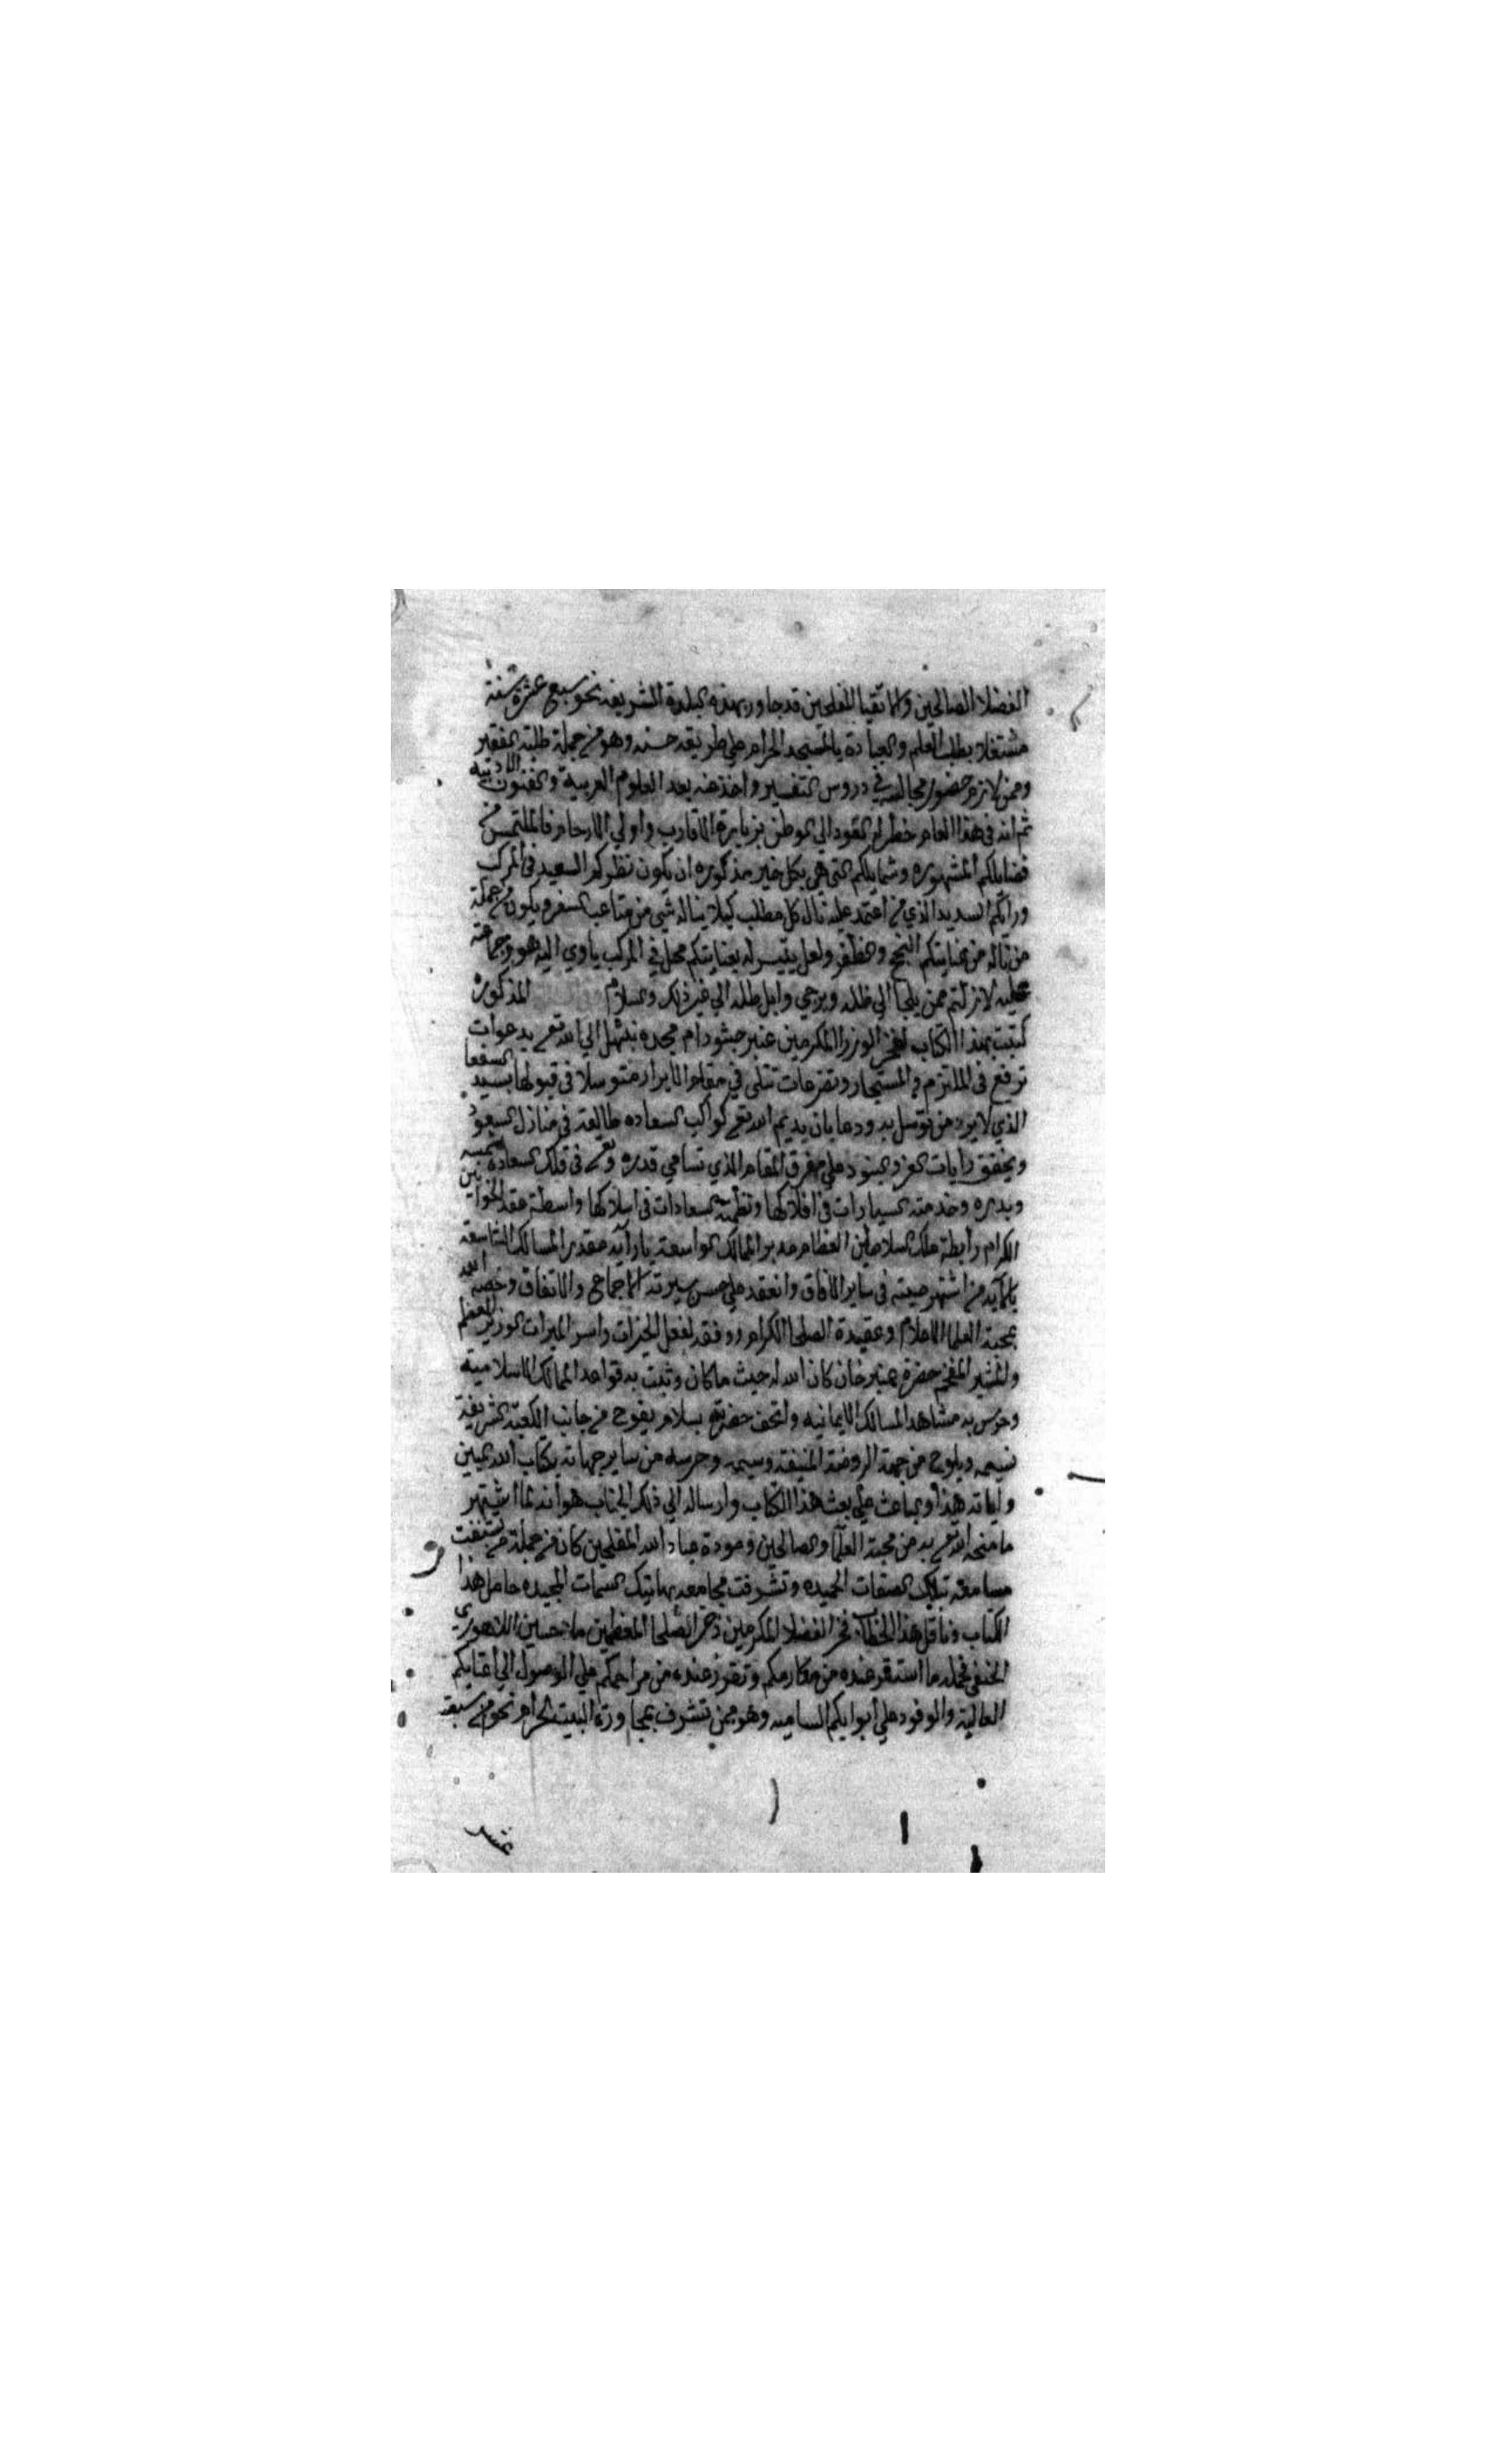 الفضلا الصالحين والاتقيا المفلحين قد جاور بهذه البلدة الشريفه نحو سبع عشرة سنة
مشتغلا بطلب العلم والعبادة بالمسجد الحرام علي طريقه حسنه وهو من جملة طلبة الفقير
وممن لازم حضور مجالسه في دروس التفسير واخذ عنه بعد العلوم العربية والفنون الادبيه
ثم انه في هذا العام خطر له العود الي الوطن بزيارة الاقارب واولي الارحام فالملتمس من
فضايلكم المشهوره وشمايلكم التي هي بكل خير مذكوره ان يكون نظركم السعيد في المركب
ورايكم السديد الذي من اعتمد عليه نال كل مطلب كيلا يناله شي من متاعب السفر ويكون من جملة
من ناله من عنايتكم النجح والظفر ولعل يتيسر له بعنايتكم محل في المركب ياوي اليه هو وجماعته
عليه لا زلتم ممن يلجا الي ظله ويرجي وابل طله الي غير ذلك والسلام المذكوره
كتبت هذا الكتاب لفخر الوزرا المكرمين عنبر جشو دام مجده نبتهل الي الله تعي بدعوات
ترفع في الملتزم والمستجار وتضرعات تتلي في مقام الابرار متوسلا في قبولها بسيد الشفعا
الذي لا يرد من توسل به ودعا بان يديم الله تعي كواكب السعاده طالعة في منازل السعود
ويخفق رايات العز والبنود علي مفرق المقام الذي تسامي قدره و في فلك السعادة شمسه
وبدره وخدمته السيارات في افلاكها ونظمته السعادات في اسلاكها واسطة عقد الخواتين
الكرام رابطة ملك السلاطين العظام مدبر الممالك الواسعة بارآيه مقدر المسالك الشاسعة
بالآيه من اشتهر صيته في ساير الافاق وانعقد علي حسن سيرته الاجماع والاتفاق وخصه الله
بمحبة العلما الاعلام وعقيدة الصلحا الكرام ووفقه لفعل الخيرات واسر المبرات الوزير المعظم
والمشير المفخم حضرة عنبر خان كان الله له حيث ما كان وثبت به قواعد الممالك الاسلاميه
وحرس به مشاهد المسالك الايمانيه واتحف حضرته بسلام يفوح من جانب الكعبة الشريفة
نسيمه ويلوح من جهة الروضة المنيفة وسيمه وحرسه من ساير جهاته بكتاب الله المبين
واياته هذا والباعث علي بعث هذا الكتاب وارساله الي ذلك الجناب هو انه لما اشتهر
ما منحه الله تعي به من محبة العلمآ والصالحين ومودة عباد الله المفلحين كان من جملة من تشنفت
مسامعه بتلك الصفات الحميده وتشرفت مجامعه بهاتيك السمات المجيده حامل هذا
الكتاب وناقل هذا الخطاب فخر الفضلا المكرمين ذخر الصلحا المعظمين ملا حسين اللاهوري
الحنفي فحمله ما استقر عنده من مكارمكم وتقرر عنده من مراحمكم علي الوصول الي اعتابكم
العالية والوفود علي ابوابكم الساميه وهو ممن تشرف بمجاورة البيت الحرام نحو من سبعة
عشر